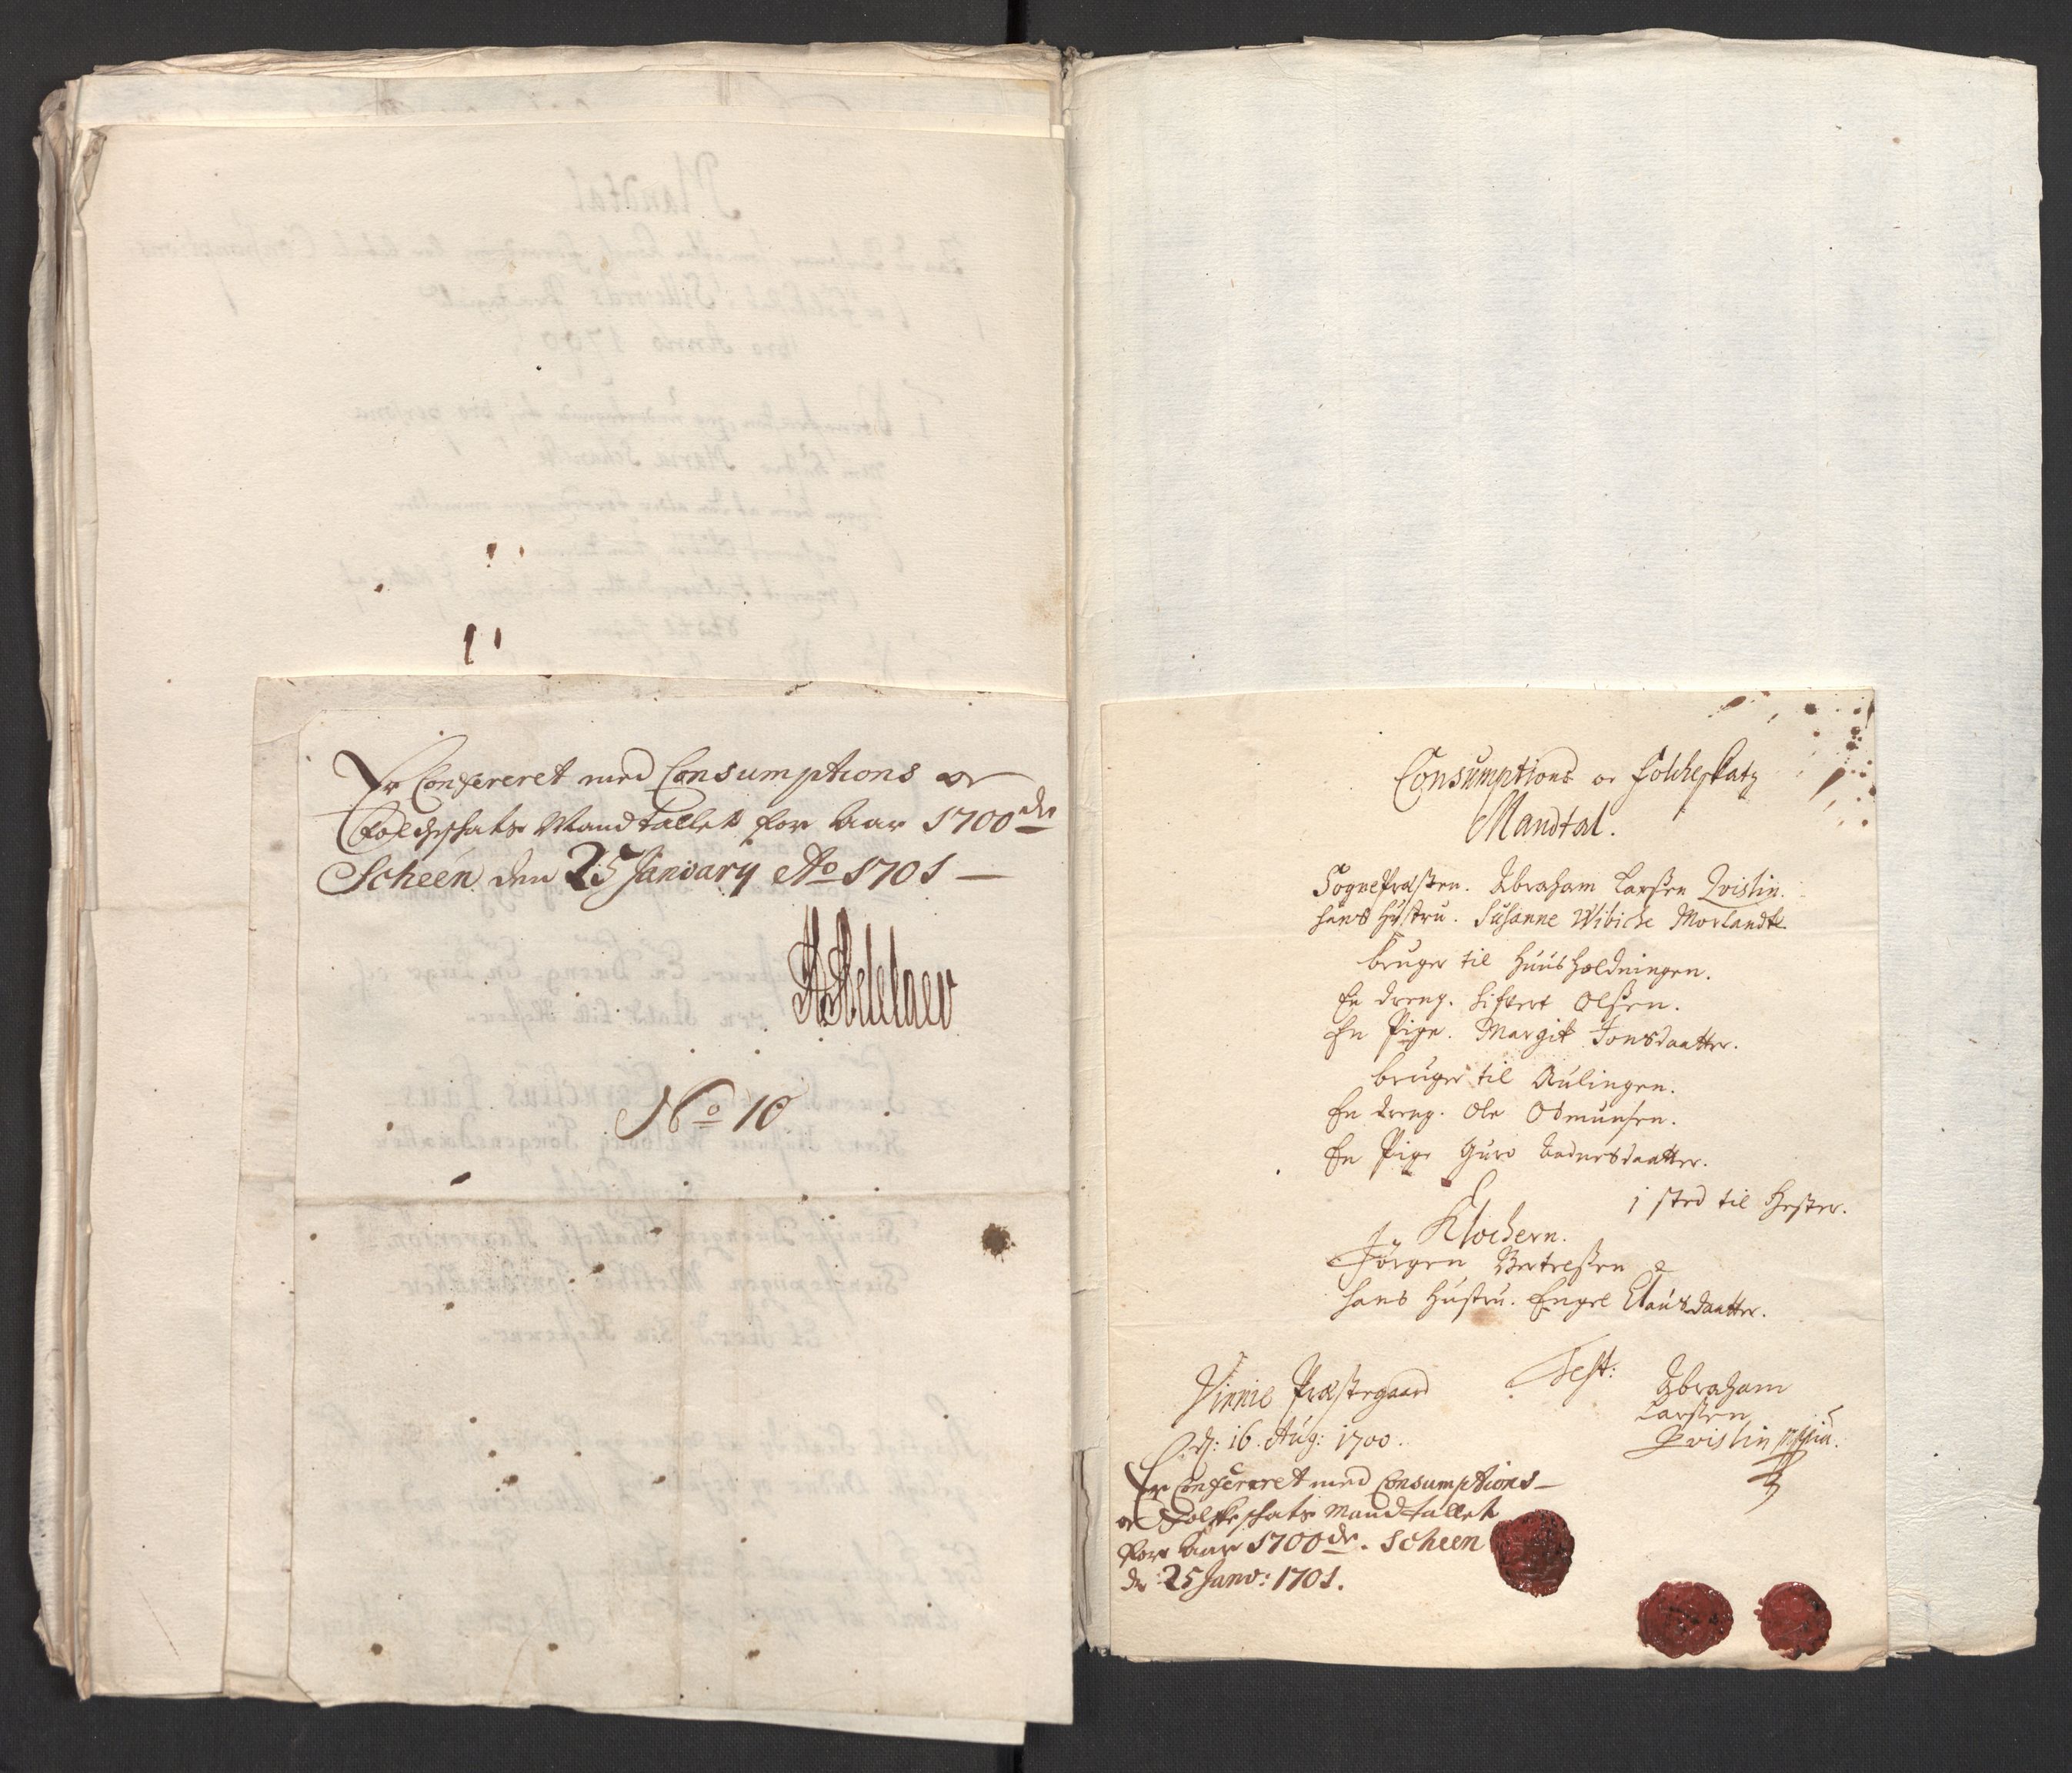 Er Confereret med Consumptions og
Folcheschats Mandtallet for Aar 1700de
Scheen den 25 January Ao 1701
No 10
Consumptions og Folcheskatz
Mandtal.
SognePræsten. Abraham Larsen Qvislin.
hans Hustru. Susanne Wibiche Morlandt.
bruger til Huusholdningen.
En dreng. Sifvert Olsen.
En Pige. Margit Jonsdaatter.
bruger til Aulingen.
En dreng. Ole Osmunsen.
En Pige Guro Aadnesdaatter.
i sted til Hester.
Klochern.
Jörgen Bertelsen &
hans Hustru. Engel Clausdaatter.
Vinnie Præstegaard
d: 16. Aug: 1700.
Test:
Abraham
Larsen
Qvislin mppia.
Er Confereret med Consumptions
og Folkeschats Mandtallet
for Aar 1700de. Scheen
de 25 Janv: 1701.